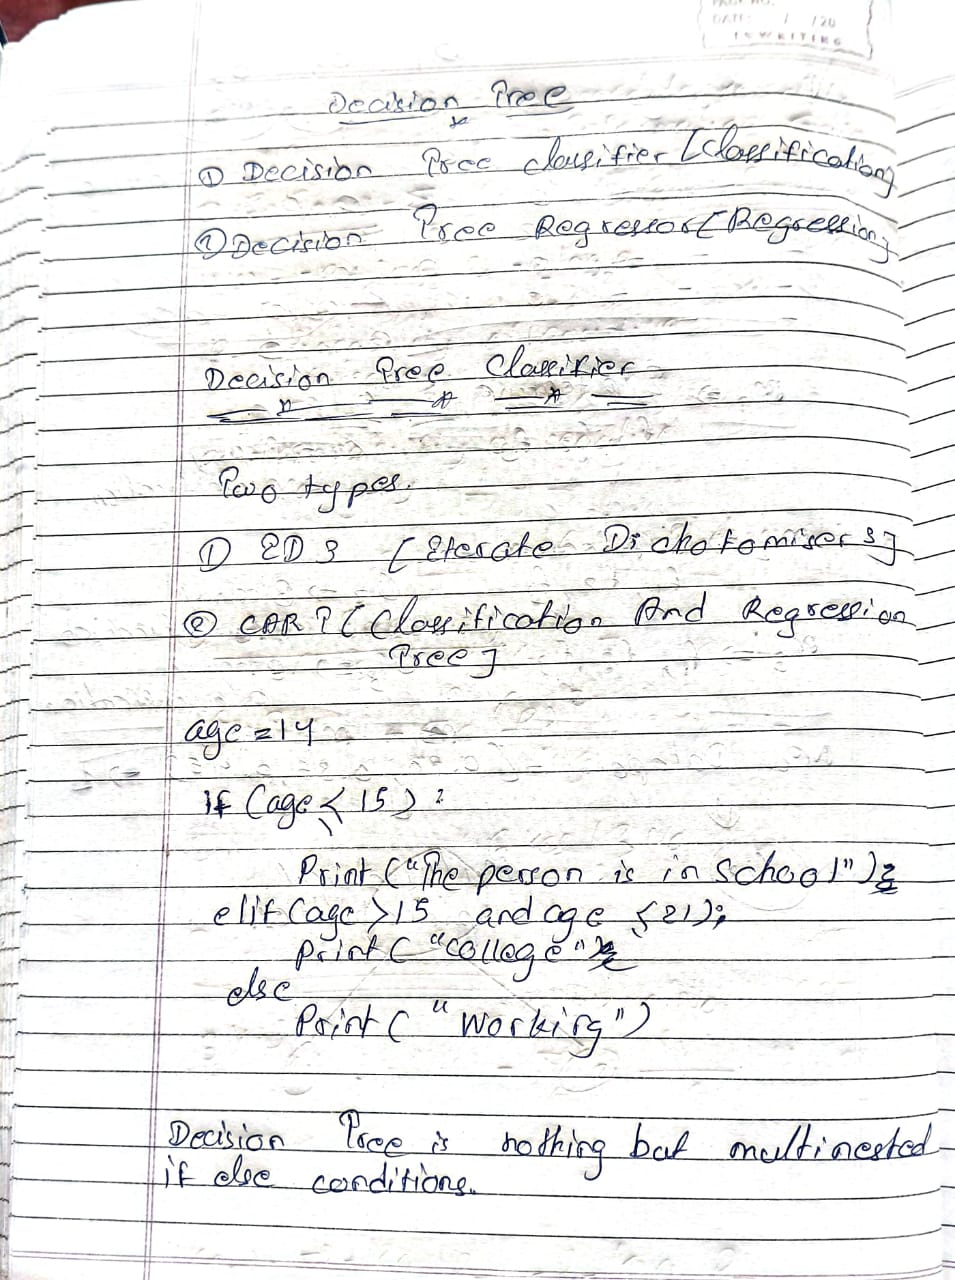 PAGE NO.
DATE: / /20
Decision Tree
① Decision Tree classifier [Classification]
② Decision Tree Regressor [Regression]
Decision Tree Classifier
Two types.
① ID3 [Iterate Dichotomiser 3]
② CART [Classification And Regression
Tree]
age = 14
if (age ≤ 15) :
Print ("The person is in School")
elif (age > 15 and age ≤ 21):
print ("college")
else
Print ("Working")
Decision Tree is nothing but multinested
if else conditions.